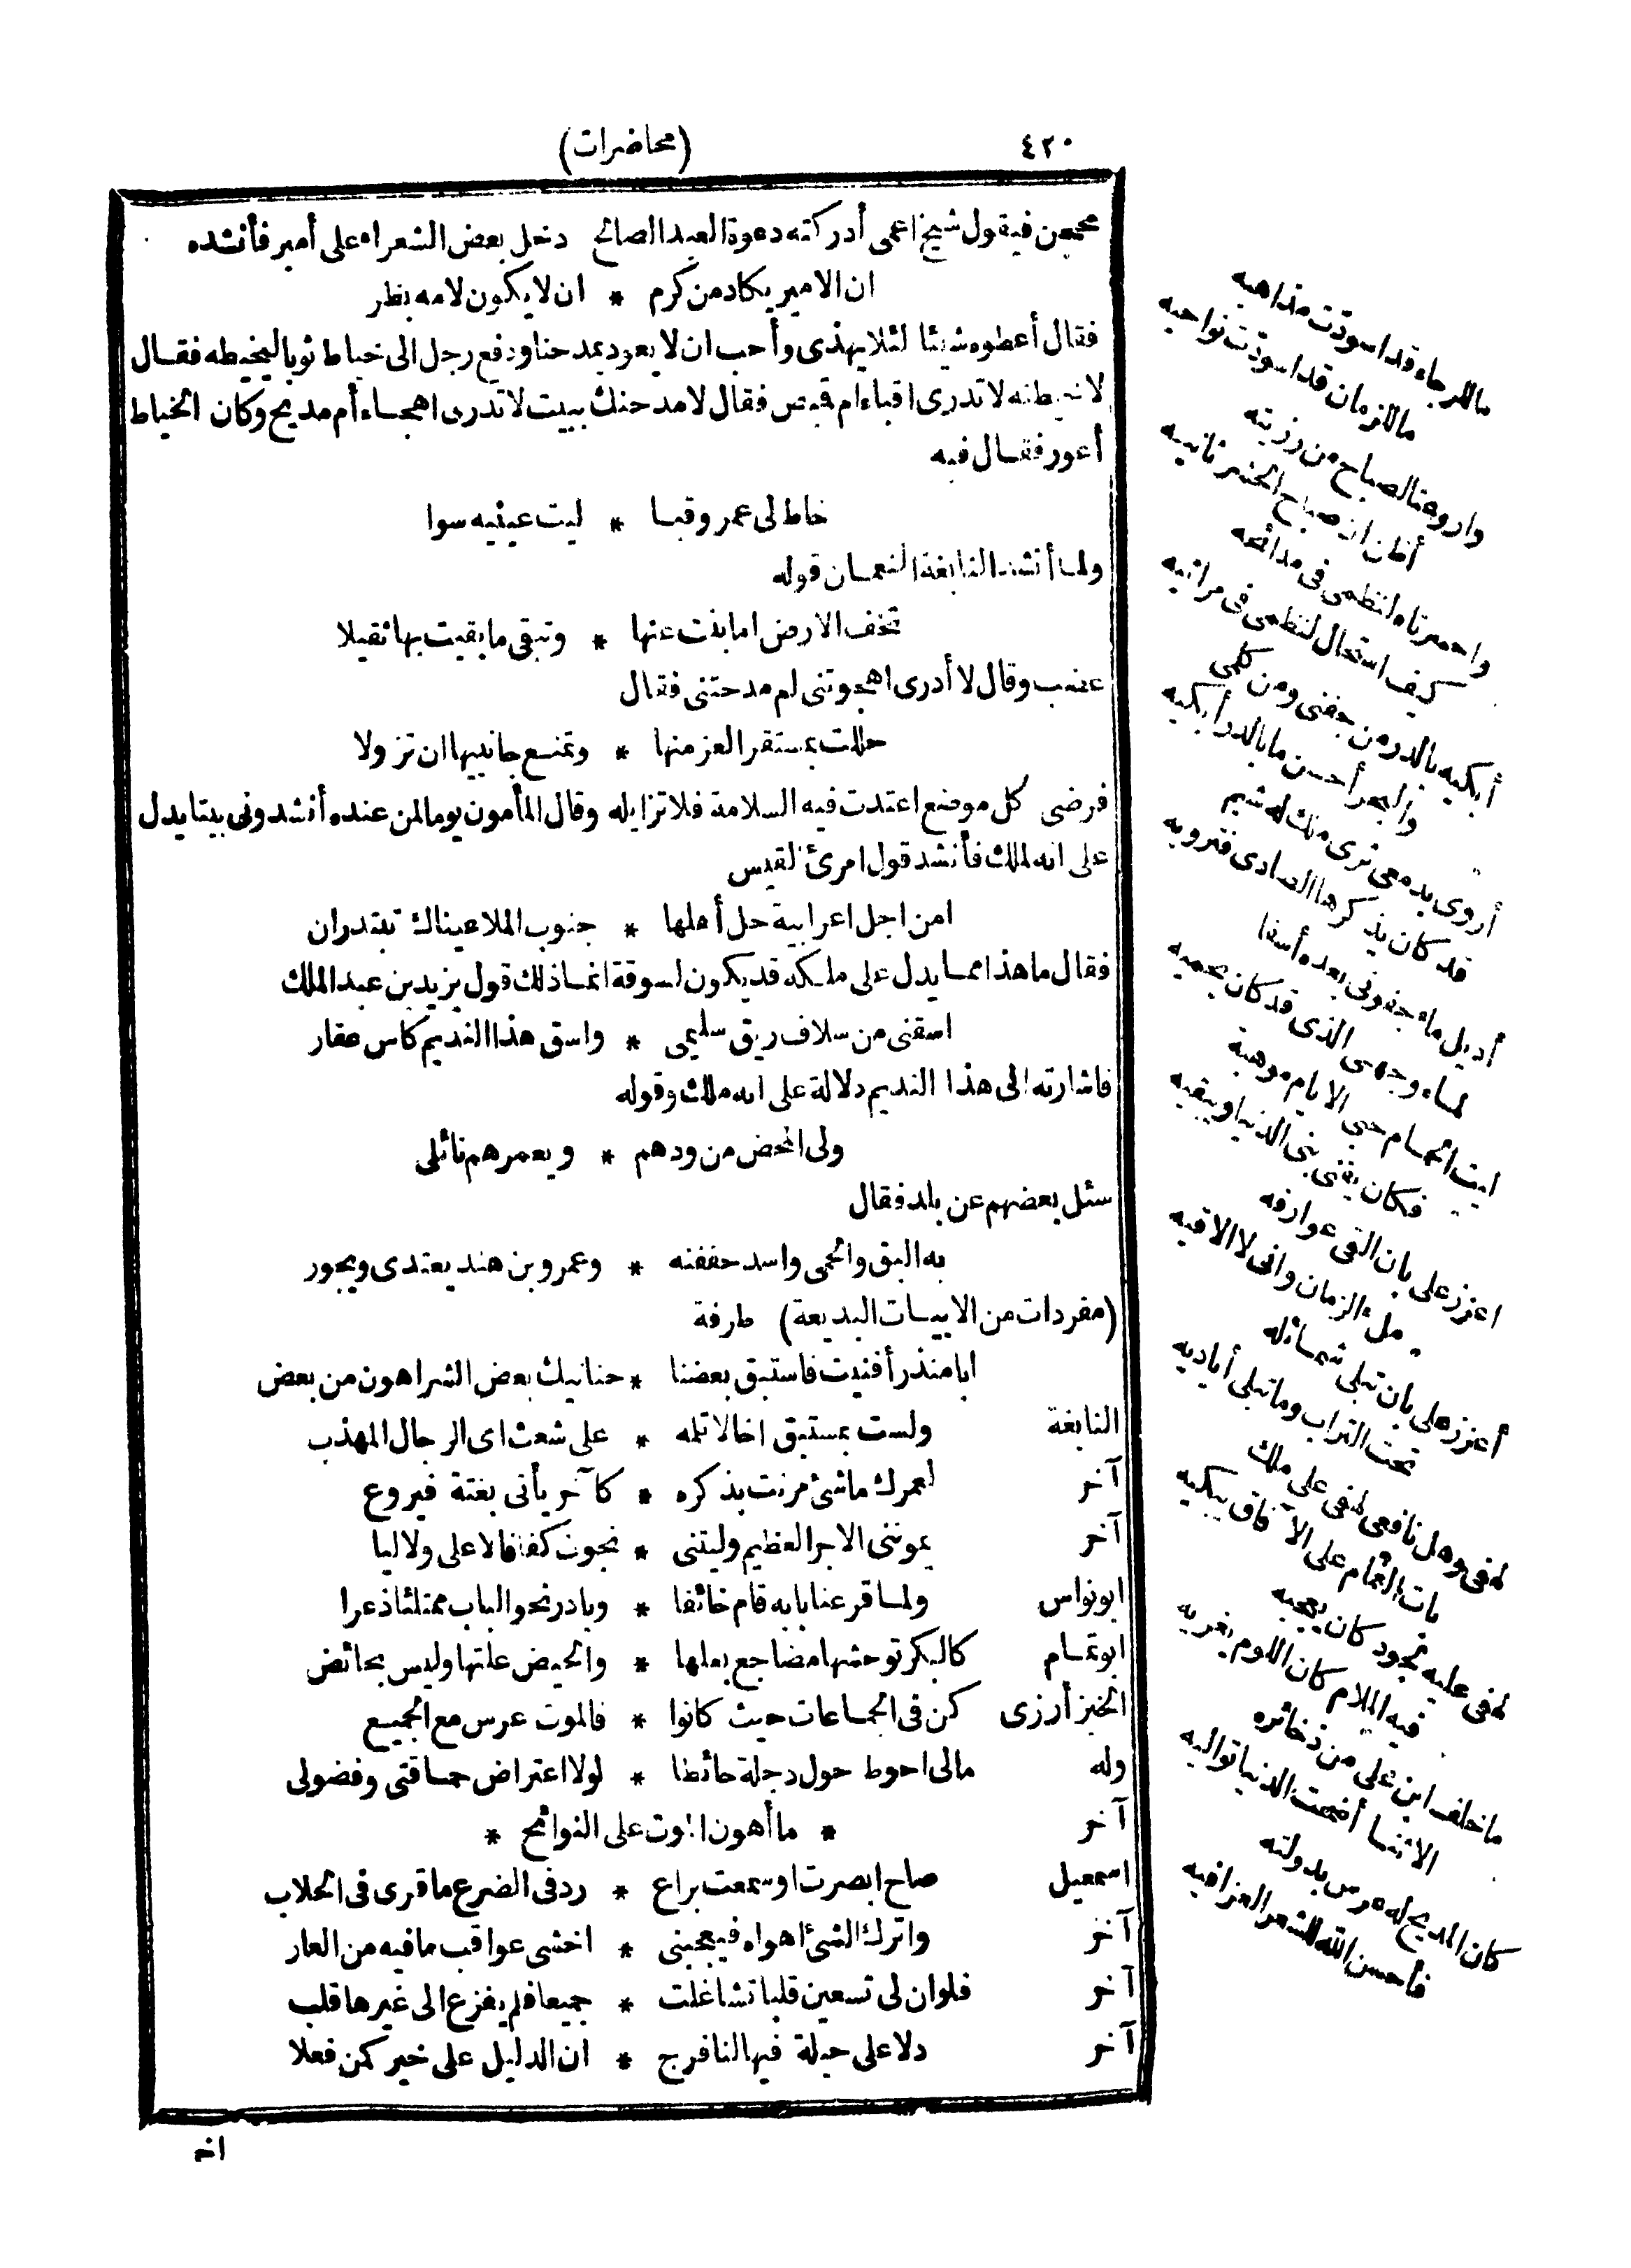 ٤٢٠
(محاضرات)
مجمعين فيقول شيخ اعمى أدركته دعوة العبد الصالح دخل بعض الشعراء على أمير فأنشده
ان الامير يكاد من كرم * ان لا يكون لامه بظر
فقال أعطوه شيئا لئلا يهذى وأحب ان لا يعود بمدحنا ودفع رجل الى خياط ثوبا ليخيطه فقال
لاخيطنه لا تدرى اقباء ام قميص فقال لامدحنك ببيت لا تدرى اهجاء أم مديح وكان الخياط
أعور فقال فيه
خاط لى عمر وقبا * ليت عينيه سوا
ولما أنشد النابغة النعمان قوله
تخف الارض اما بنت عنها * وتبقى ما بقيت بها ثقيلا
غضب وقال لا أدرى اهجوتنى ام مدحتنى فقال
حللت بمستقر العز منها * وتمنع جانبيها ان تزولا
فرضى كل موضع اعتدت فيه السلامة فلا تزايله وقال المأمون يوما لمن عنده أنشدونى بيتا يدل
على انه لملك فأنشد قول امرئ القيس
امن اجل اعرابية حل أهلها * جنوب الملا عيناك تبتدران
فقال ما هذا مما يدل على ملكه قد يكون لسوقة انما ذلك قول يزيد بن عبد الملك
اسقنى من سلاف ريق سليمى * واسق هذا النديم كاس عقار
فاشارته الى هذا النديم دلالة على انه ملك وقوله
ولى المحض من ودهم * ويعمرهم نائلى
سئل بعضهم عن بلد فقال
به البق والحمى واسد حففنه * وعمرو بن هند يعتدى ويجور
(مفردات من الابيات البديعة) طرفة
ابا منذر أفنيت فاستبق بعضنا * حنانيك بعض الشر اهون من بعض
النابغة ولست بمستبق اخا لا تلمه * على شعث اى الرجال المهذب
آخر لعمرك ما شئ مرنت بذكره * كآخر يأتى بغتة فيروع
آخر يموتنى الاجر العظيم وليتنى * نجوت كفافا لا على ولا ليا
ابو نواس ولما قرعنا بابه قام خائفا * وبادر نحو الباب ممتلئا ذعرا
ابو تمام كالبكر توحشها مضاجع بعلها * والحيض علتها وليس بحائض
الخبز أرزى كن فى الجماعات حيث كانوا * فالموت عرس مع الجميع
وله مالى احوط حول دجلة حائطا * لولا اعتراض حماقتى وفضولى
آخر * ما أهون الموت على النوائح *
اسمعيل صاح ابصرت او سمعت براع * رد فى الضرع ما قرى فى الحلاب
آخر واترك الشئ اهواه فيعجبنى * اخشى عواقب ما فيه من العار
آخر فلو ان لى تسعين قلبا تشاغلت * جميعا فلم يفزع الى غيرها قلب
آخر دلا على حيلة فيها لنا فرج * ان الدليل على خير كمن فعلا
اخـ
ما للرجاء قد اسودت مذاهبه
ما للزمان قد اسودت نواحيه
واروعتا لصباح من رزيته
أظن ان صباح الحشر ثانيه
واحسرتاه لنظمى فى مدائحه
كيف استحال لنظمى فى مراثيه
أبكيه بالدر من جفنى ومن كلمى
والبحر أحسن ما بالدر أبكيه
أروى بدمعى ثرى ملك له شيم
قد كان يذكرها الصادى فترويه
أذيل ماء جفونى بعده أسفا
لماء وجهى الذى قد كان يحميه
ليت الحمام حبى الايام موهبة
فكان يفنى بنى الدنيا ويبقيه
اعزز على بان التقى عوارفه
ملء الزمان وانى لا الاقيه
أعزز على بان تبلى شمائله
تحت التراب وما تبلى أياديه
لهفى وهل نافعى لهفى على ملك
بات الغمام على الآفاق يبكيه
لهفى عليه لجود كان يعجبه
فيه الملام كان اللوم يغريه
ما خلف ابن على من ذخائره
الا ثنا أضحت الدنيا تواليه
كان المديح له عرس بدولته
فأحسن الله للشعر العزا فيه